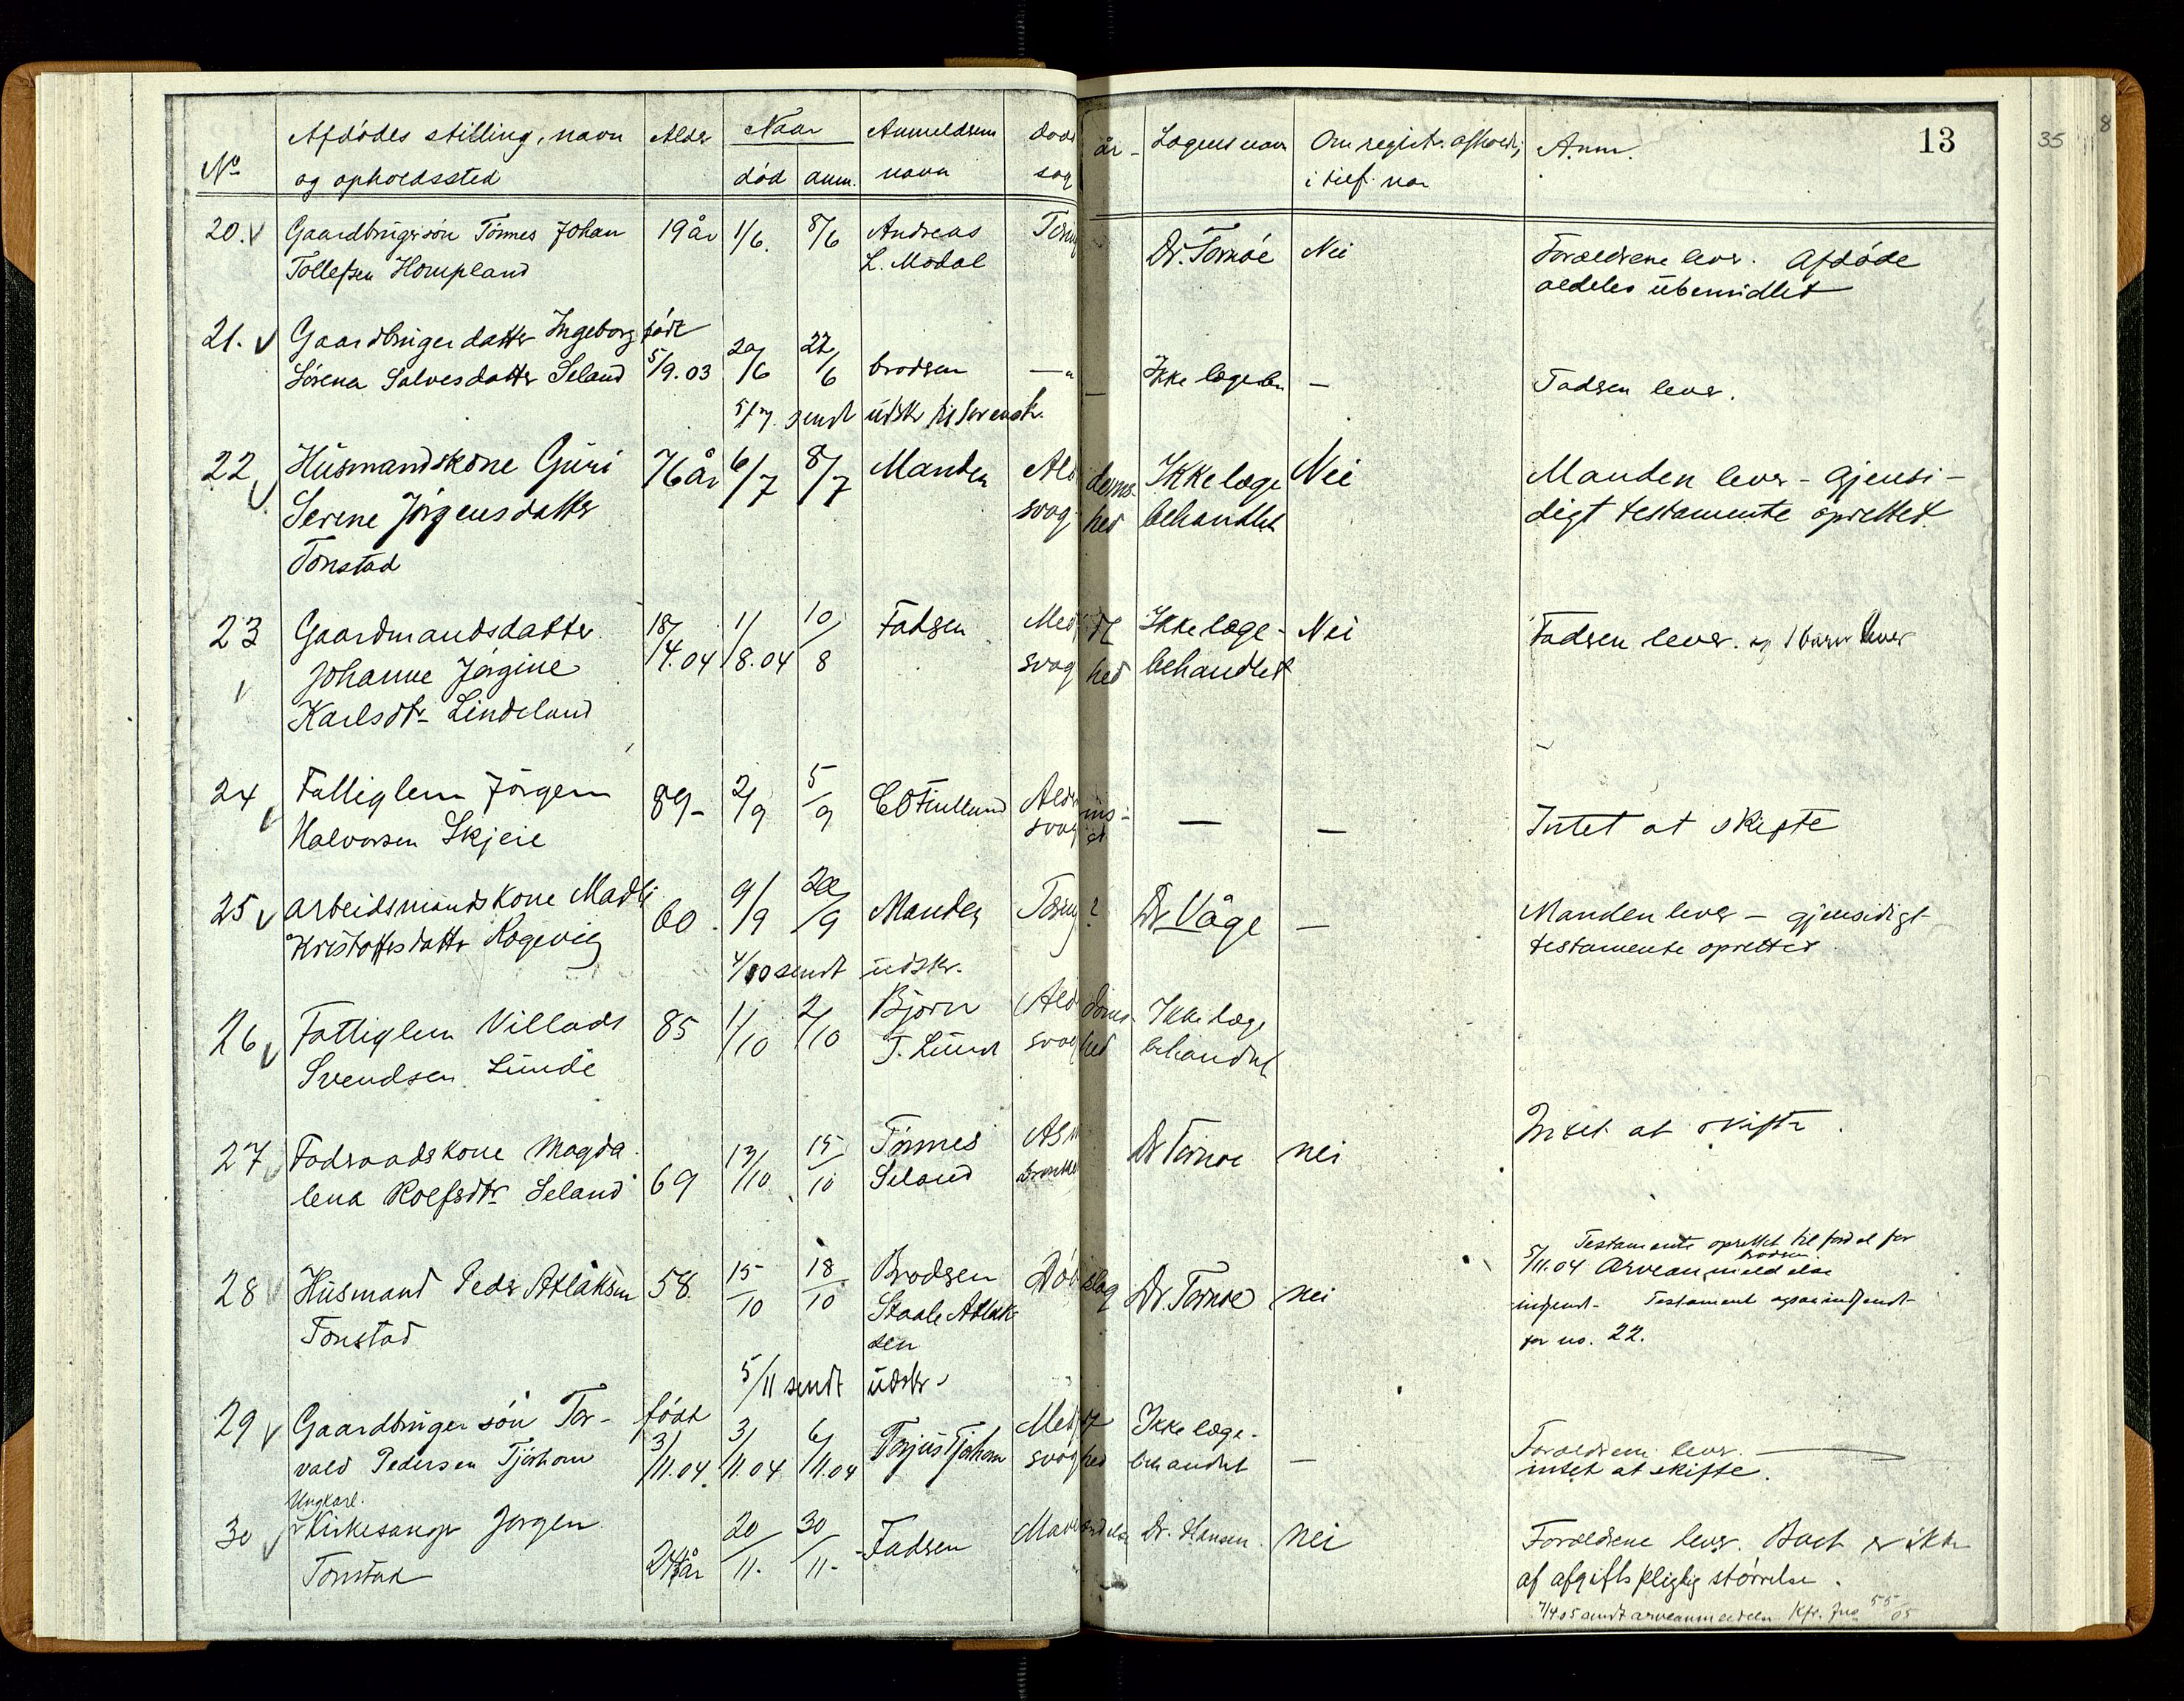 13
35
8
No
Afdødes stilling, navn
og opholdssted
Alder
Naar
død anm.
Anmelderens
navn
Lægens navn
Om registr. afholdt,
i tilf. naar
Anm.
20. Gaardbrugersøn Tønnes Johan 19 år 1/6. 8/6 Andreas Dr. Tornøe Nei Forældrene lever. Afdøde
Tollefsen Hompland L. Modal aldeles ubemidlet
21. Gaardbrugerdatter Ingeborg født
Sørena Salvesdatter Seland 5/9.03 20/6 22/6 broderen — " — Ikke lægebeh — Faderen lever.
5/7. sendt udskr til sorensk.
22 Husmandskone Guri 76 år 6/7 8/7 Manden Alderdoms- Ikke læge Nei Manden lever - gjensi-
Serine Jørgensdatter svaghed behandlet digt testamente oprettet.
Tonstad
23 Gaardmandsdatter 18/4.04 1/8.04 10/8 Faderen Medfødt Ikke læge- Nei Faderen lever. og 1 barn lever
Johanne Jørgine svaghed behandlet
Karlsdtr Lindeland
24 Fattiglem Jørgen 89 - 2/9 5/9 Alderdoms- — — Intet at skifte
Halvorsen Skjeie svaghed
25 Arbeidsmandskone Madli 60. 9/9 20/9 Manden Tæring? Dr Våge — Manden lever - gjensidigt
Kristoffersdatter Rogevig testamente oprettet
4/10 sendt udskr.
26 Fattiglem Villads 85 1/10 2/10 Bjørn Alderdoms- Ikke læge
Svendsen Lunde T. Lund svaghed behandlet
Intet at skifte.
27 Føderaadskone Magda- 69 13/10 15/10 Tønnes Dr Tornøe nei
lena Rolfsdtr Seland Seland
28 Husmand Peder Atlaksen 58 15/10 18/10 Broderen Dr. Tornøe nei
Tonstad Staale Atlak-
sen
Testamente oprettet til fordel for
broderen
5/11.04 Arveanmeldelse
indsendt. Testament ogsaa indsendt
for no. 22.
5/11 sendt udskr.
29 Gaardbrugersøn Tor- født 3/11.04 3/11.04 6/11.04 Torjus Tjørhom Medfødt Ikke læge- — Forældrene lever.
vald Pedersen Tjørhom svaghed behandlet intet at skifte.
Ungkarl.
30 Kirkesanger Jørgen 24 år 20/11. 30/11. Faderen Dr. Hansen. nei Forældrene lever. Boet er ikke
Tonstad af afgiftspligtig størrelse.
7/4 05 sendt arveanmeldelse Kfr. Jno 55/05